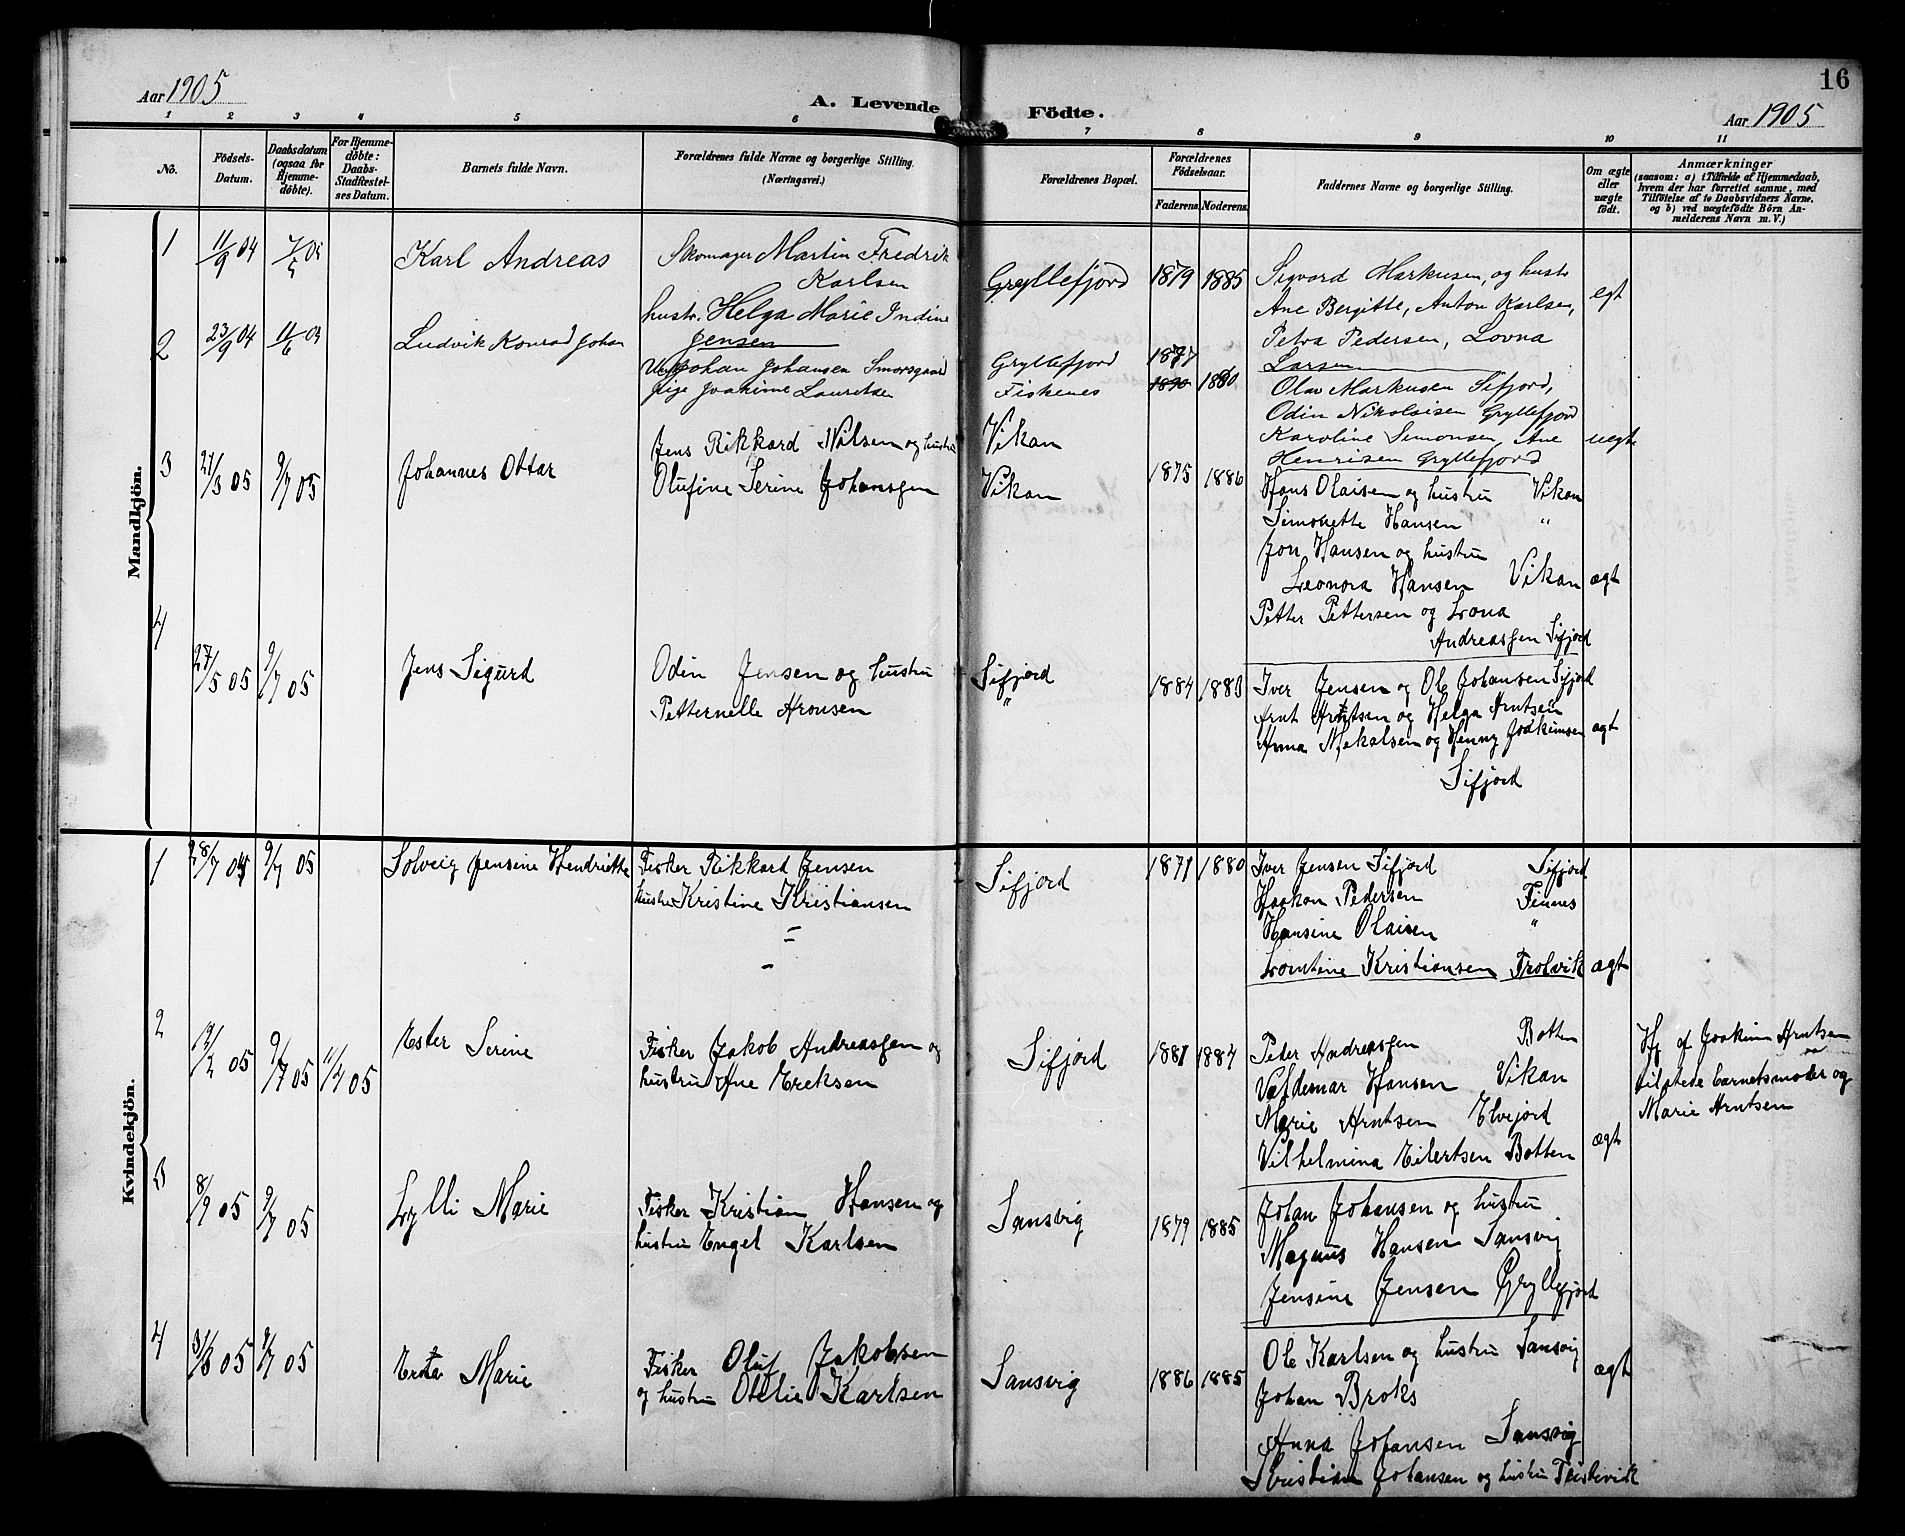 Aar 1905
A. Levende Födte.
16
Aar 1905
1 2 3 4 5 6 7 8 9 10 11
No.
Födsels-Datum.
Daabsdatum (ogsaa for Hjemme-döbte).
For Hjemme-döbte: Daabs-Stadfæstel-ses Datum.
Barnets fulde Navn.
Forældrenes fulde Navne og borgerlige Stilling. (Næringsvei.)
Forældrenes Bopæl.
Forældrenes Födselsaar.
Faderens. Moderens.
Faddernes Navne og borgerlige Stilling.
Om ægte eller uægte födt.
Anmærkninger
(saasom: a) i Tilfælde af Hjemmedaab,
hvem der har forrettet samme, med
Tilföielse af to Daabsvidners Navne,
og b) ved uægtefödte Börn An-
melderens Navn m. V.)
Mandkjön.
1 11/9 04 Karl Andreas
Skomager Martin Fredrik
Karlsen
hustr. Helga Marie Indine
Jensen
Gryllefjord 1879 1885
Sigvard Markusen, og hustr
Ane Bergitte, Anton Karlsen,
Petra Pedersen, Lovna
Larsen
egt
2 23/9 04 11/6 Ludvik Konrad Johan
Johan Johansen Smorsgaard
Pige Joakime Lauritsen
Gryllefjord 1877
Fiskenes 1890 1880
Olav Markusen Sifjord,
Odin Nikolaisen Gryllefjord
Karoline Simonsen, Ane
Henrisen Gryllefjord
uegt
3 27/3 05 9/7 05 Johannes Ottar
Jens Rikkard Nilsen og hustru
Olufine Serine Johansen
Vikan
Vikan 1875 1886
Hans Olaisen og hustru Vikan
Simonette Hansen "
Jon Hansen og hustru
Leonora Hansen Vikan
Petter Pettersen og Lona
Andreassen Sifjord
ægt
4 27/5 05 9/7 05 Jens Sigurd
Odin Jensen og hustru
Petternelle Aronsen
Sifjord
"
1884 1883
Iver Jensen og Ole Johansen Sifjord
Arnt Arntsen og Helga Arntsen
Anna Mekalsen og Henny Joakimsen
Sifjord
ægt
Kvindekjön.
1 28/7 04 9/7 05 Solveig Jensine Hendriette
Fisker Rikkard Jensen
hustru Kristine Kristiansen
Sifjord 1871 1880
Iver Jensen Sifjord Sifjord
Haakon Pedersen Finnes
Hansine Olaisen "
Lorntine Kristiansen Trolvik
ægt
2 12/2 05 9/7 05 11/4 05 Ester Serine
Fisker Jakob Andreassen og
hustru Ane Ereksen
Sifjord 1881 1884
Peder Andreassen Botten
Valdemar Hansen Vikan
Marie Arntsen Elvejord
Vilhelmina Eilertsen Botten
ægt
Hj af Joakim Arntsen
tilstede barnetsmoder og
Marie Arntsen
3 8/9 05 9/7 05 Lylli Marie
Fisker Kristian Hansen og
hustru Engel Karlsen
Sansvig 1879 1885
Johan Johansen og hustru
Magnus Hansen Sansvig
Jensine Jensen Gryllefjord
4 31/3 05 9/7 05 Marie
Fisker Oluf Jakobsen
og hustru Otelie Karlsen
Sansvig 1886 1885
Ole Karlsen og hustru Sansvig
Johan Broks
Anna Johansen Sansvig
Kristian Johansen og hustru
ægt